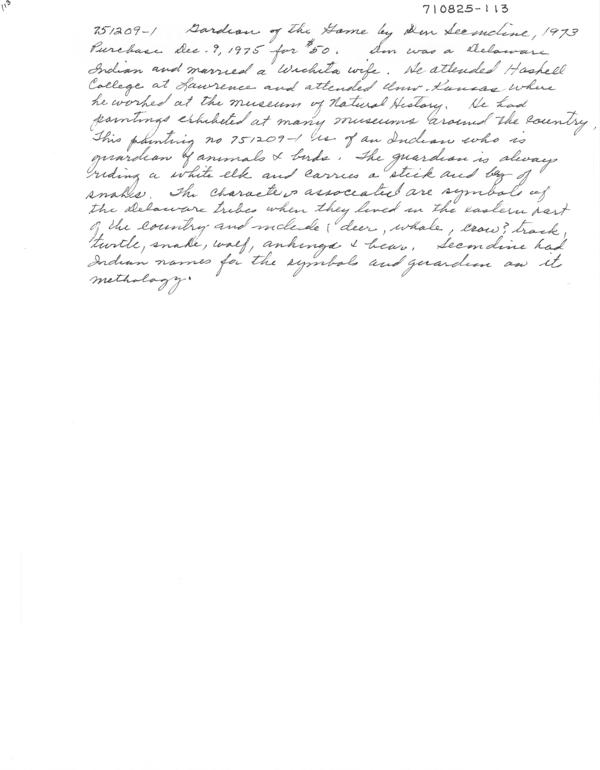 113
710825-113
751209-1 Gardian of the Game by Don Secondine, 1973
Purchase Dec. 9, 1975 for $50. Don was a Delaware
Indian and married a Wichita wife. He attended Haskell
College at Lawrence and attended Univ. Kansas where
he worked at the museum of Natural History. He had
paintings exhibited at many museums around the country.
This painting no 751209-1 is of an Indian who is
guardian of animals & birds. The guardian is always
riding a white elk and carries a stick and bag of
snakes. The characters associated are symbols of
the Delaware tribes when they lived in the eastern part
of the country and include: deer, whale, crow? track,
turtle, snake, wolf, & bear. Secondine had
Indian names for the symbols and guardian on it
methology.